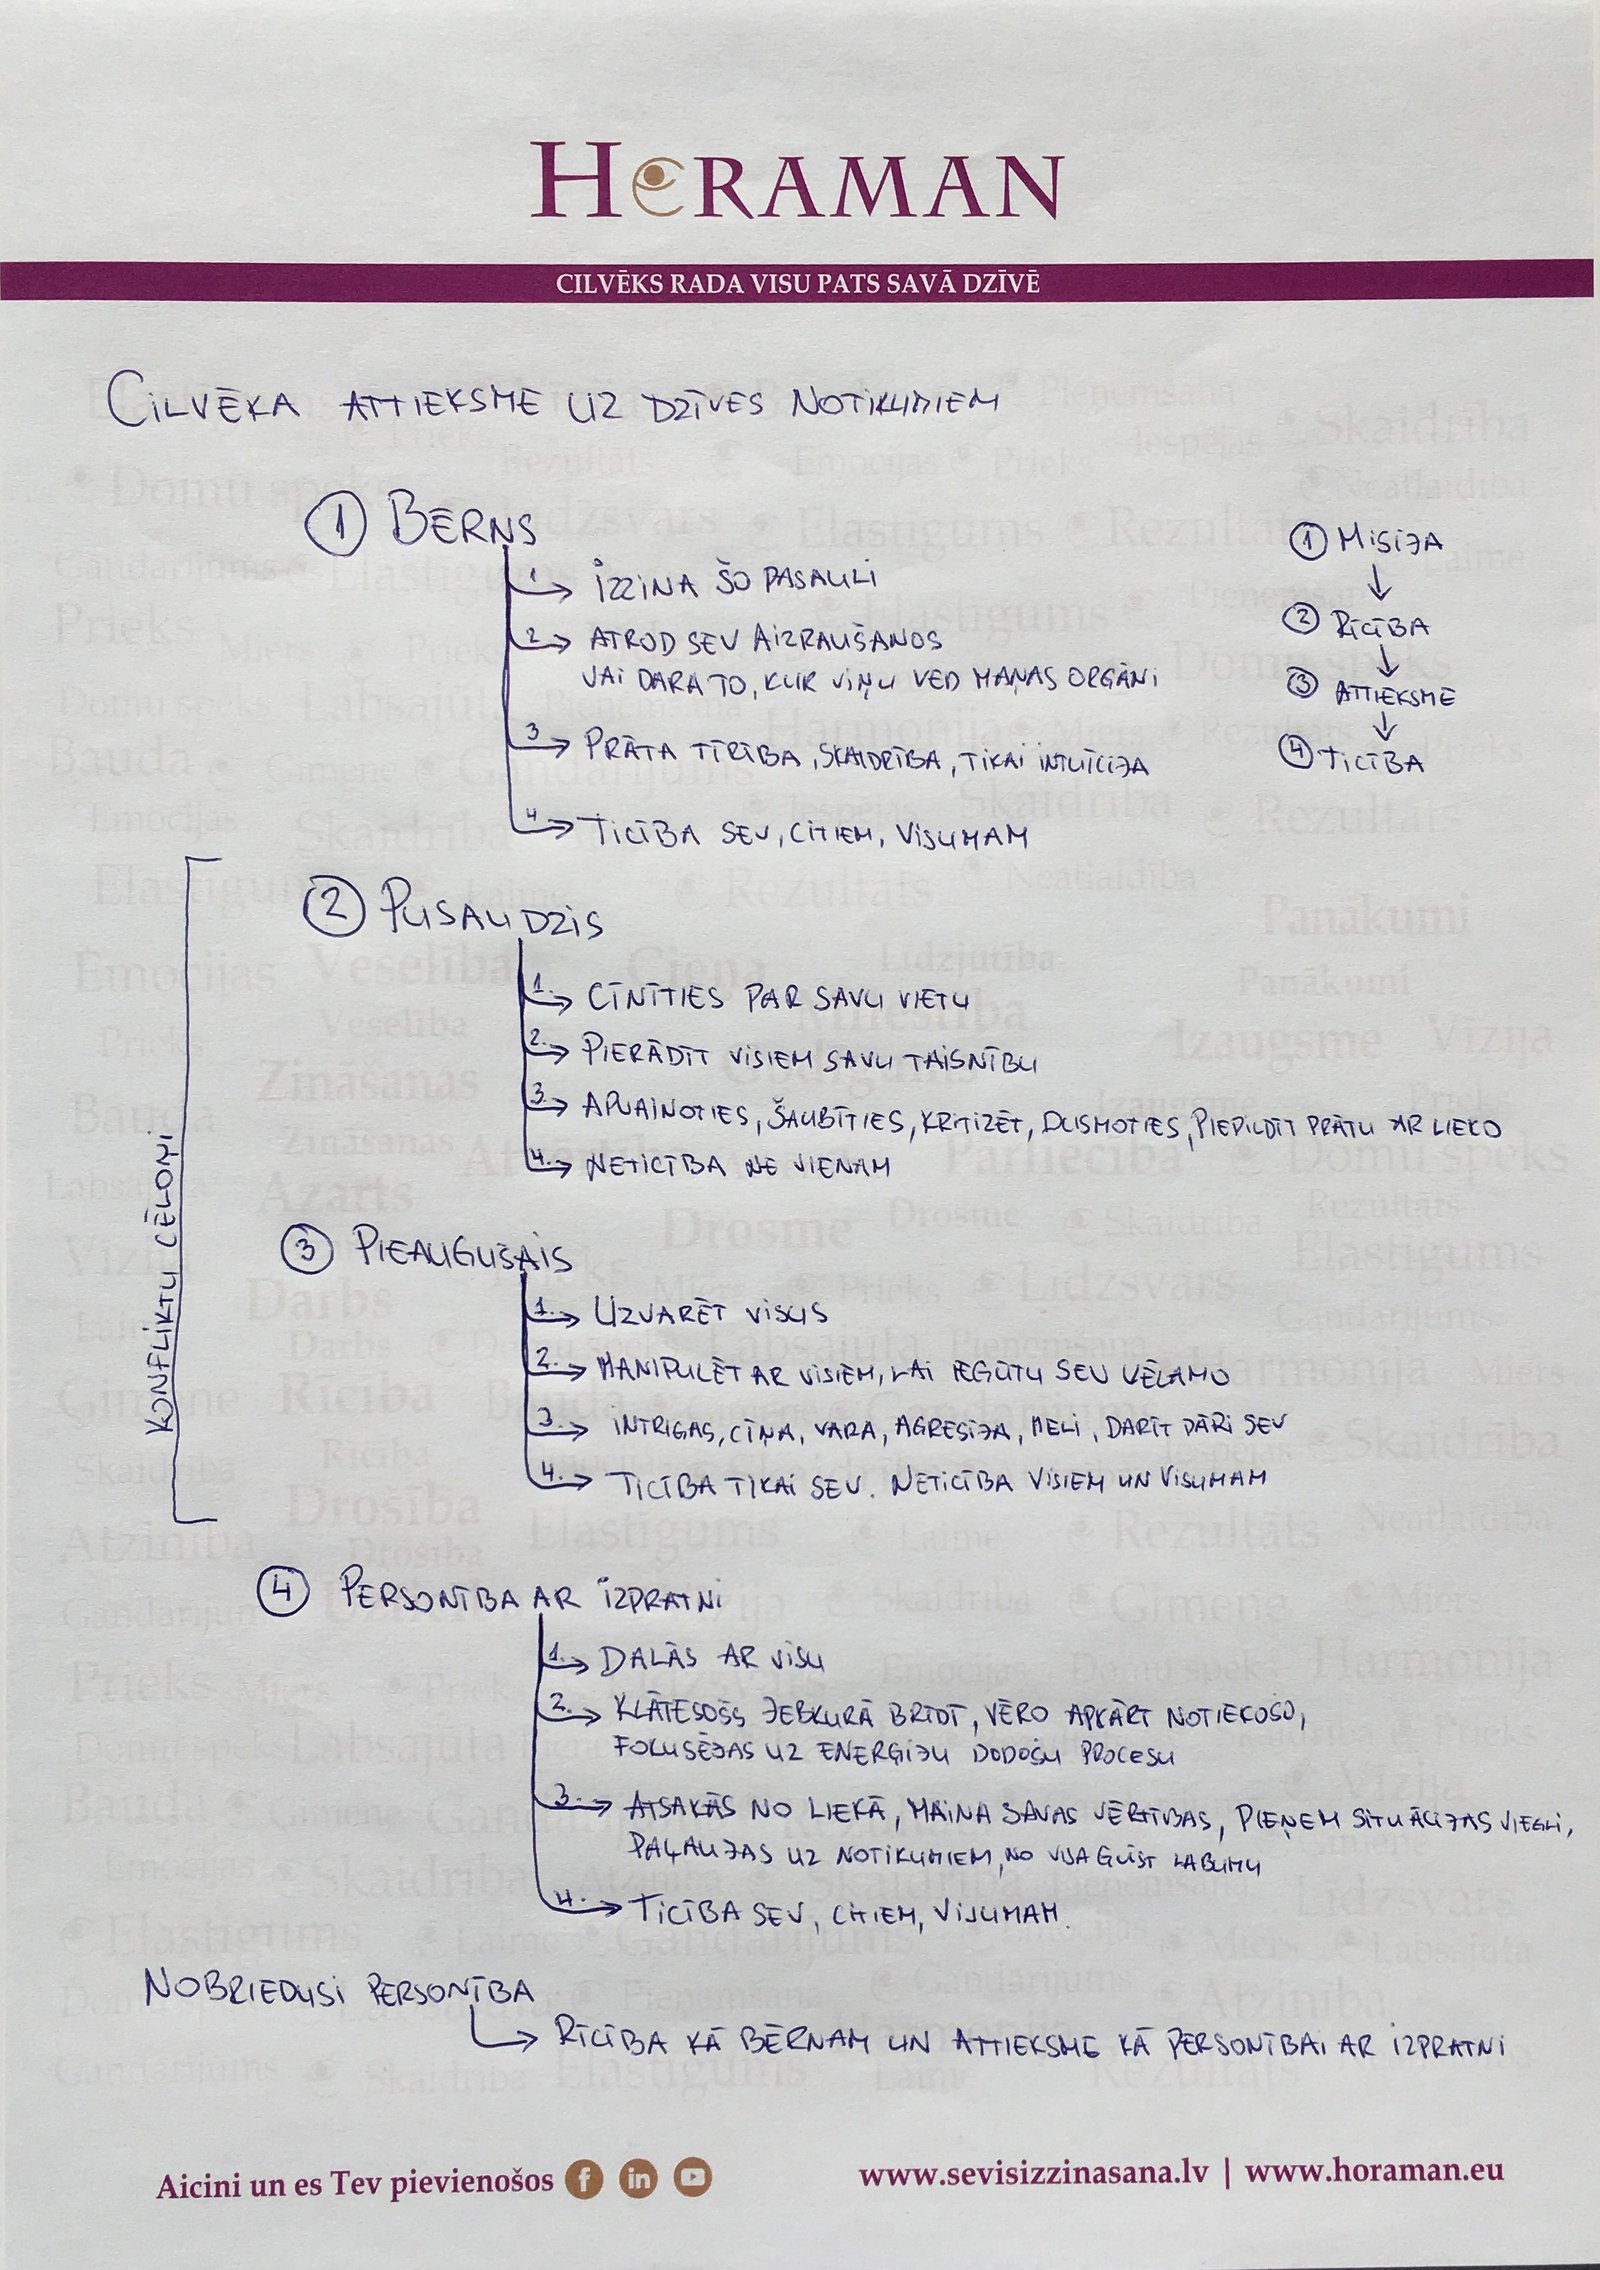 HORAMAN
CILVĒKS RADA VISU PATS SAVĀ DZĪVĒ
CILVĒKA ATTIEKSME UZ DZĪVES NOTIKUMIEM
① BĒRNS
1 → IZZINA ŠO PASAULI
2 → ATROD SEV AIZRAUŠANOS
VAI DARA TO, KUR VIŅU VED MAŅAS ORGĀNI
3 → PRĀTA TĪRĪBA, SKAIDRĪBA, TIKAI INTUĪCIJA
4 → TICĪBA SEV, CITIEM, VISUMAM
① MISIJA
↓
② RĪCĪBA
↓
③ ATTIEKSME
↓
④ TICĪBA
KONFLIKTU CĒLOŅI
② PUSAUDZIS
1. → CĪNĪTIES PAR SAVU VIETU
2. → PIERĀDĪT VISIEM SAVU TAISNĪBU
3. → APVAINOTIES, ŠAUBĪTIES, KRITIZĒT, DUSMOTIES, PIEPILDĪT PRĀTU AR LIEKO
4. → NETICĪBA NE VIENAM
③ PIEAUGUŠAIS
1. → UZVARĒT VISUS
2. → MANIPULĒT AR VISIEM, LAI IEGŪTU SEV VĒLAMO
3. → INTRIGAS, CĪŅA, VARA, AGRESIJA, MELI, DARĪT PĀRI SEV
4. → TICĪBA TIKAI SEV. NETICĪBA VISIEM UN VISUMAM
④ PERSONĪBA AR IZPRATNI
1. → DALĀS AR VISU
2. → KLĀTESOŠS JEBKURĀ BRĪDĪ, VĒRO APKĀRT NOTIEKOŠO,
FOKUSĒJAS UZ ENERĢIJU DODOŠU PROCESU
3. → ATSAKĀS NO LIEKĀ, MAINA SAVAS VĒRTĪBAS, PIEŅEM SITUĀCIJAS VIEGLI,
PAĻAUJAS UZ NOTIKUMIEM, NO VISA GŪST LABUMU
4. → TICĪBA SEV, CITIEM, VISUMAM.
NOBRIEDUSI PERSONĪBA
→ RĪCĪBA KĀ BĒRNAM UN ATTIEKSME KĀ PERSONĪBAI AR IZPRATNI
Aicini un es Tev pievienošos
www.sevisizzinasana.lv | www.horaman.eu